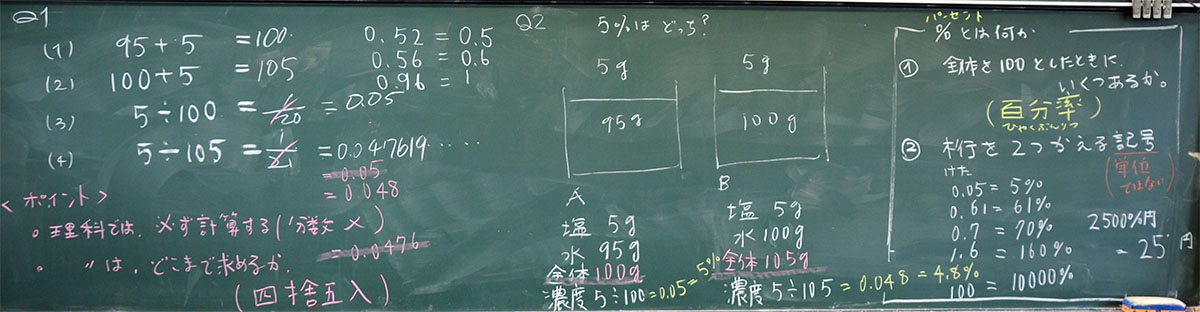 Q1
(1) 95+5 =100
(2) 100+5 =105
(3) 5÷100 = 1/20 = 0.05
(4) 5÷105 = 1/21 = 0.047619……
= 0.05
= 0.048
= 0.0476
0.52 = 0.5
0.56 = 0.6
0.96 = 1
<ポイント>
・理科では、必ず計算する(分数×)
・〃は、どこまで求めるか.
(四捨五入)
Q2 5%は どっち?
5g
95g
A
塩 5g
水 95g
全体 100g
濃度 5÷100 = 0.05 = 5%
5g
100g
B
塩 5g
水 100g
全体 105g
濃度 5÷105 = 0.048 = 4.8%
パーセント
%とは何か
① 全体を100としたときに
いくつあるか。
(百分率)
ひゃくぶんりつ
② 桁を2つかえる記号
けた
(単位ではない)
0.05 = 5%
0.61 = 61%
0.7 = 70%
1.6 = 160%
100 = 10000%
2500%円
= 25円